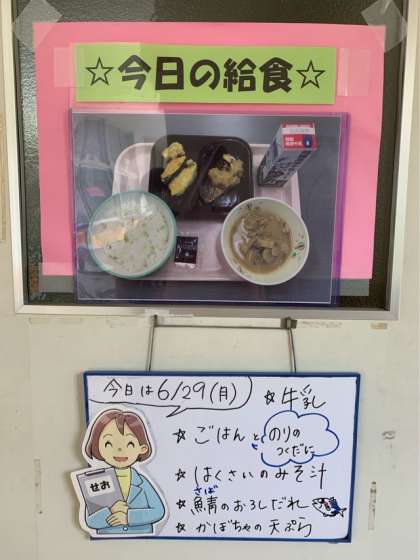 ☆今日の給食☆
今日は6/29(月)
☆牛乳
☆ごはんと のりの
つくだに
☆はくさいのみそ汁
さば
☆鯖のおろしだれ
☆かぼちゃの天ぷら
せお